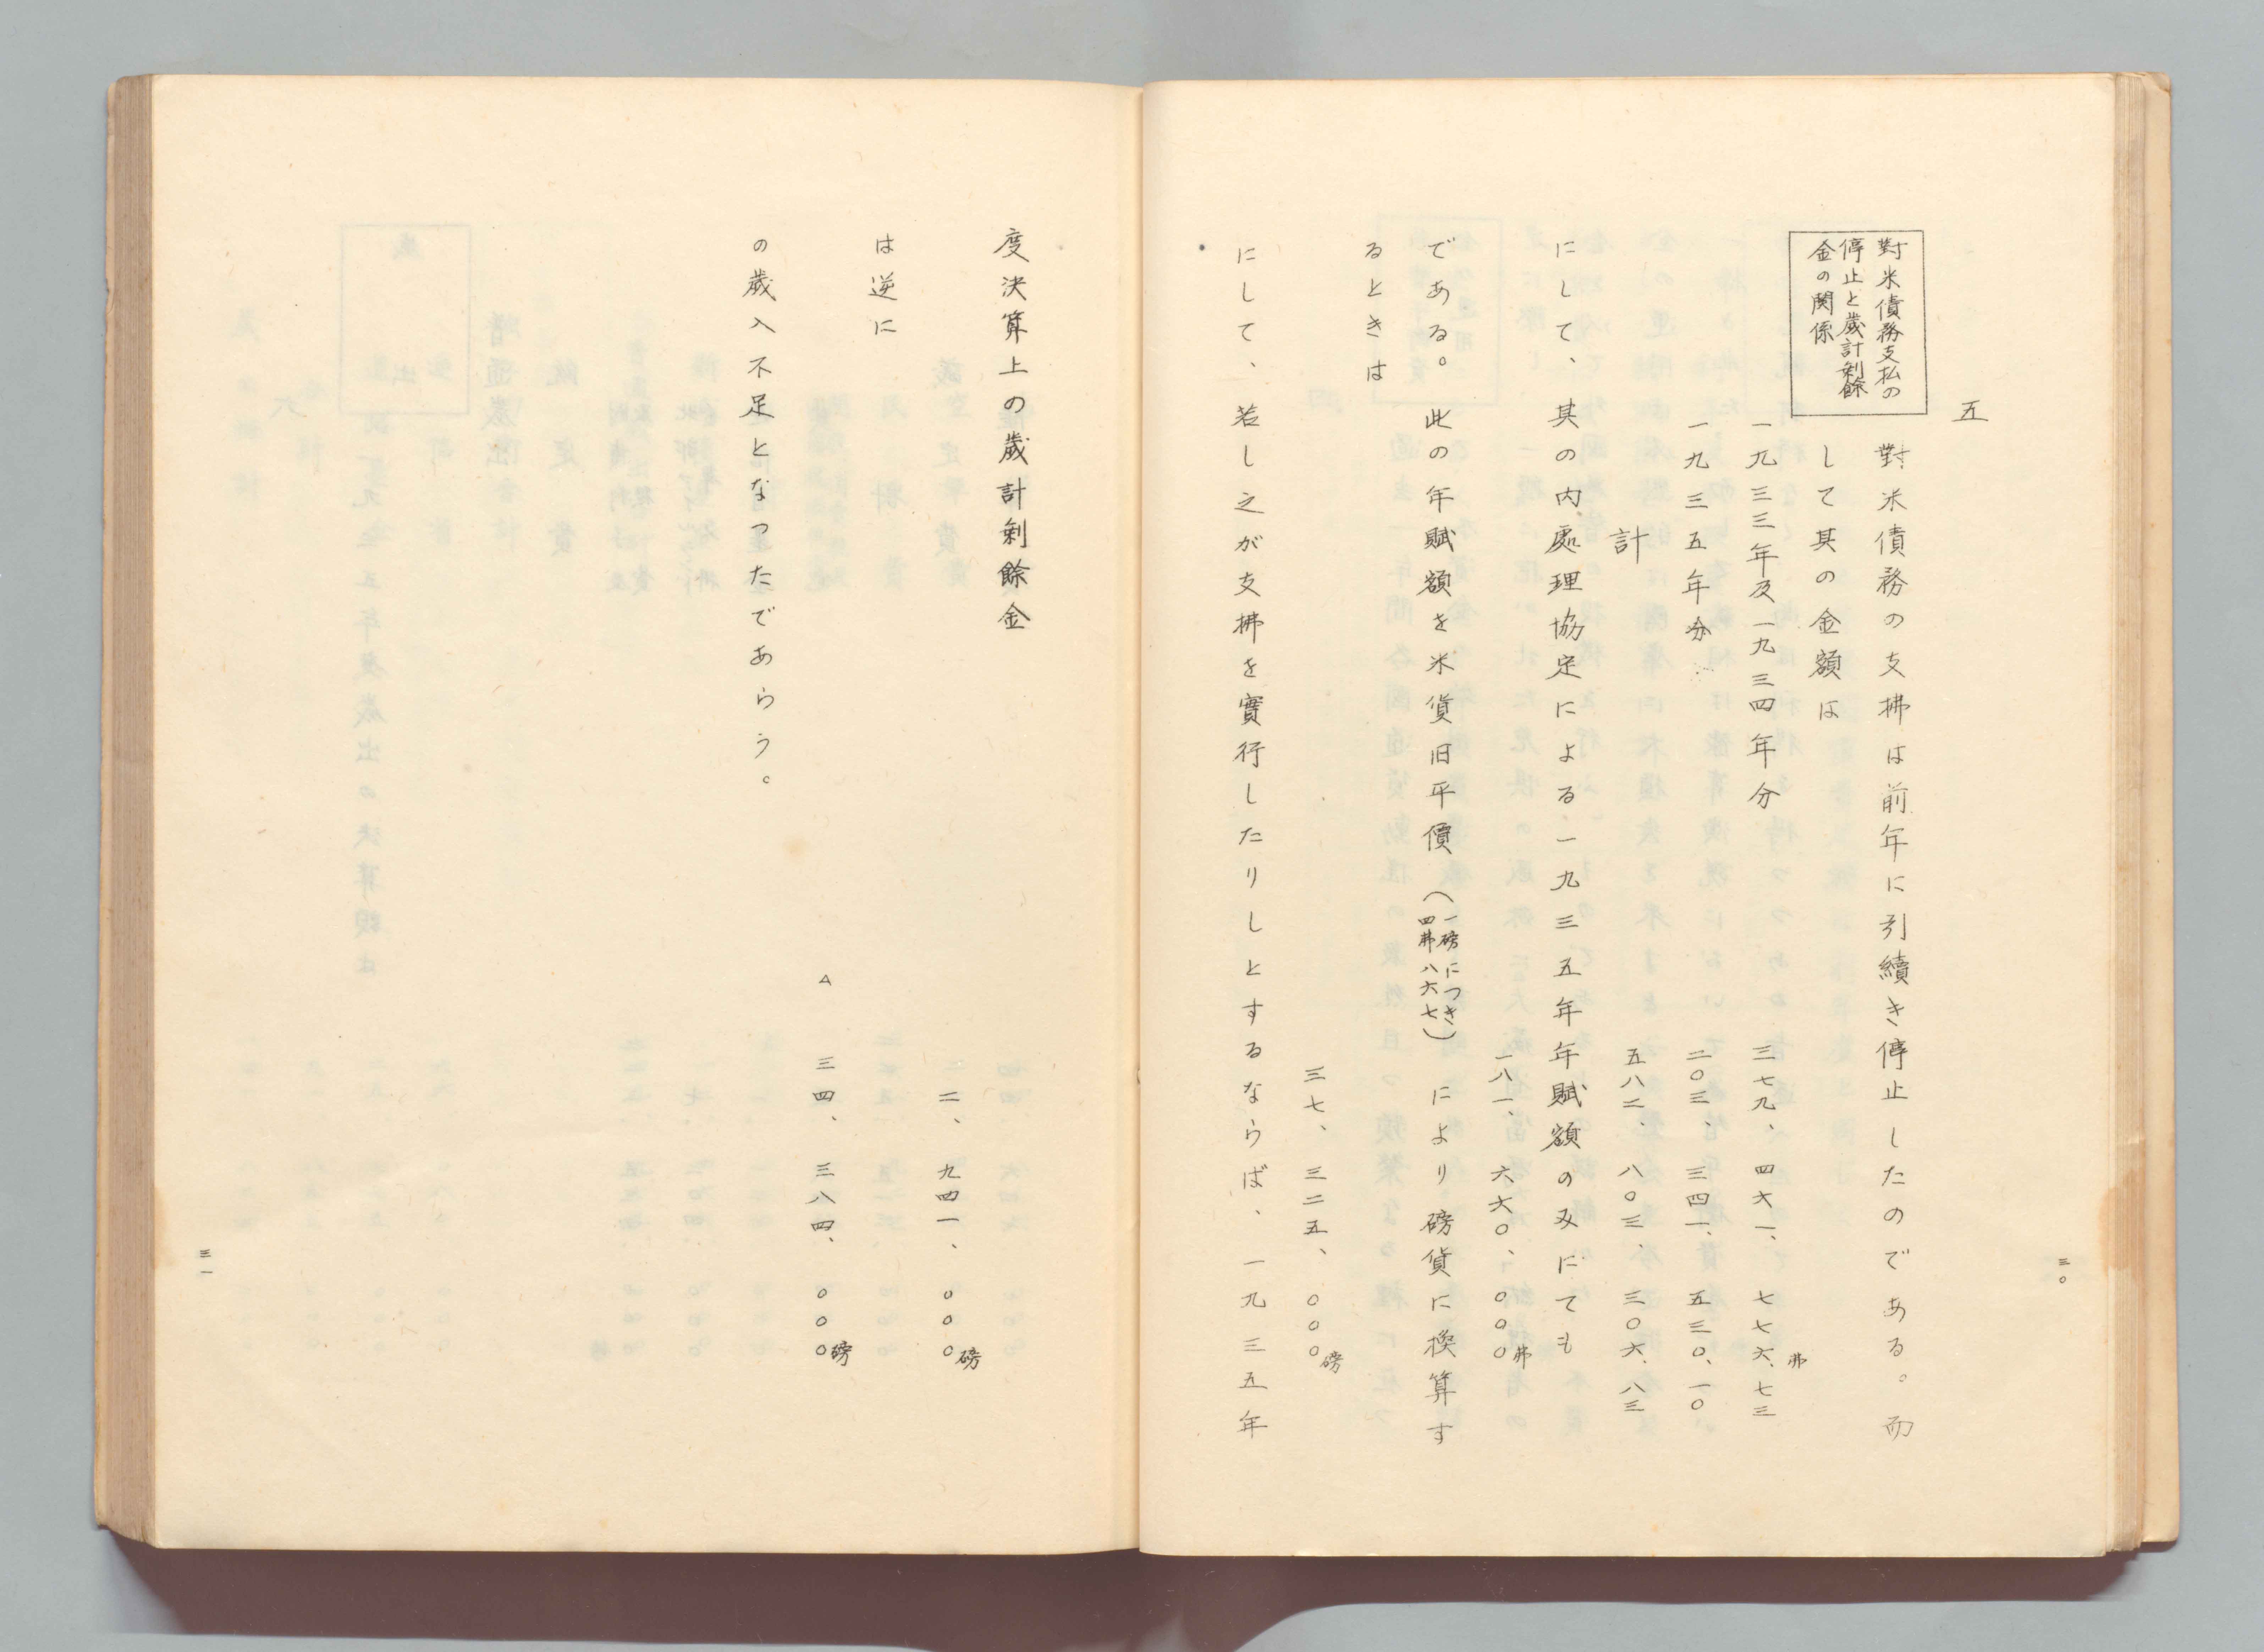 三〇
五
對米債務支払の
停止と歲計剰餘
金の関係
對米債務の支拂は前年に引續き停止したのである。而
して其の金額は
一九三三年及一九三四年分 三七九、四六一、七七六、七三弗
一九三五年分 二〇三、三四一、五三〇、一〇
計 五八二、八〇三、三〇六、八三
にして、其の内處理協定による一九三五年年賦額のみにても
一八一、六六〇、〇〇〇弗
である。此の年賦額を米貨旧平價(一磅につき
四弗八六七)により磅貨に換算す
るときは
三七、三二五、〇〇〇磅
にして、若し之が支拂を實行したりしとするならば、一九三五年
度決算上の歲計剰餘金
二、九四一、〇〇〇磅
は逆に
△ 三四、三八四、〇〇〇磅
の歲入不足となつたであらう。
三一